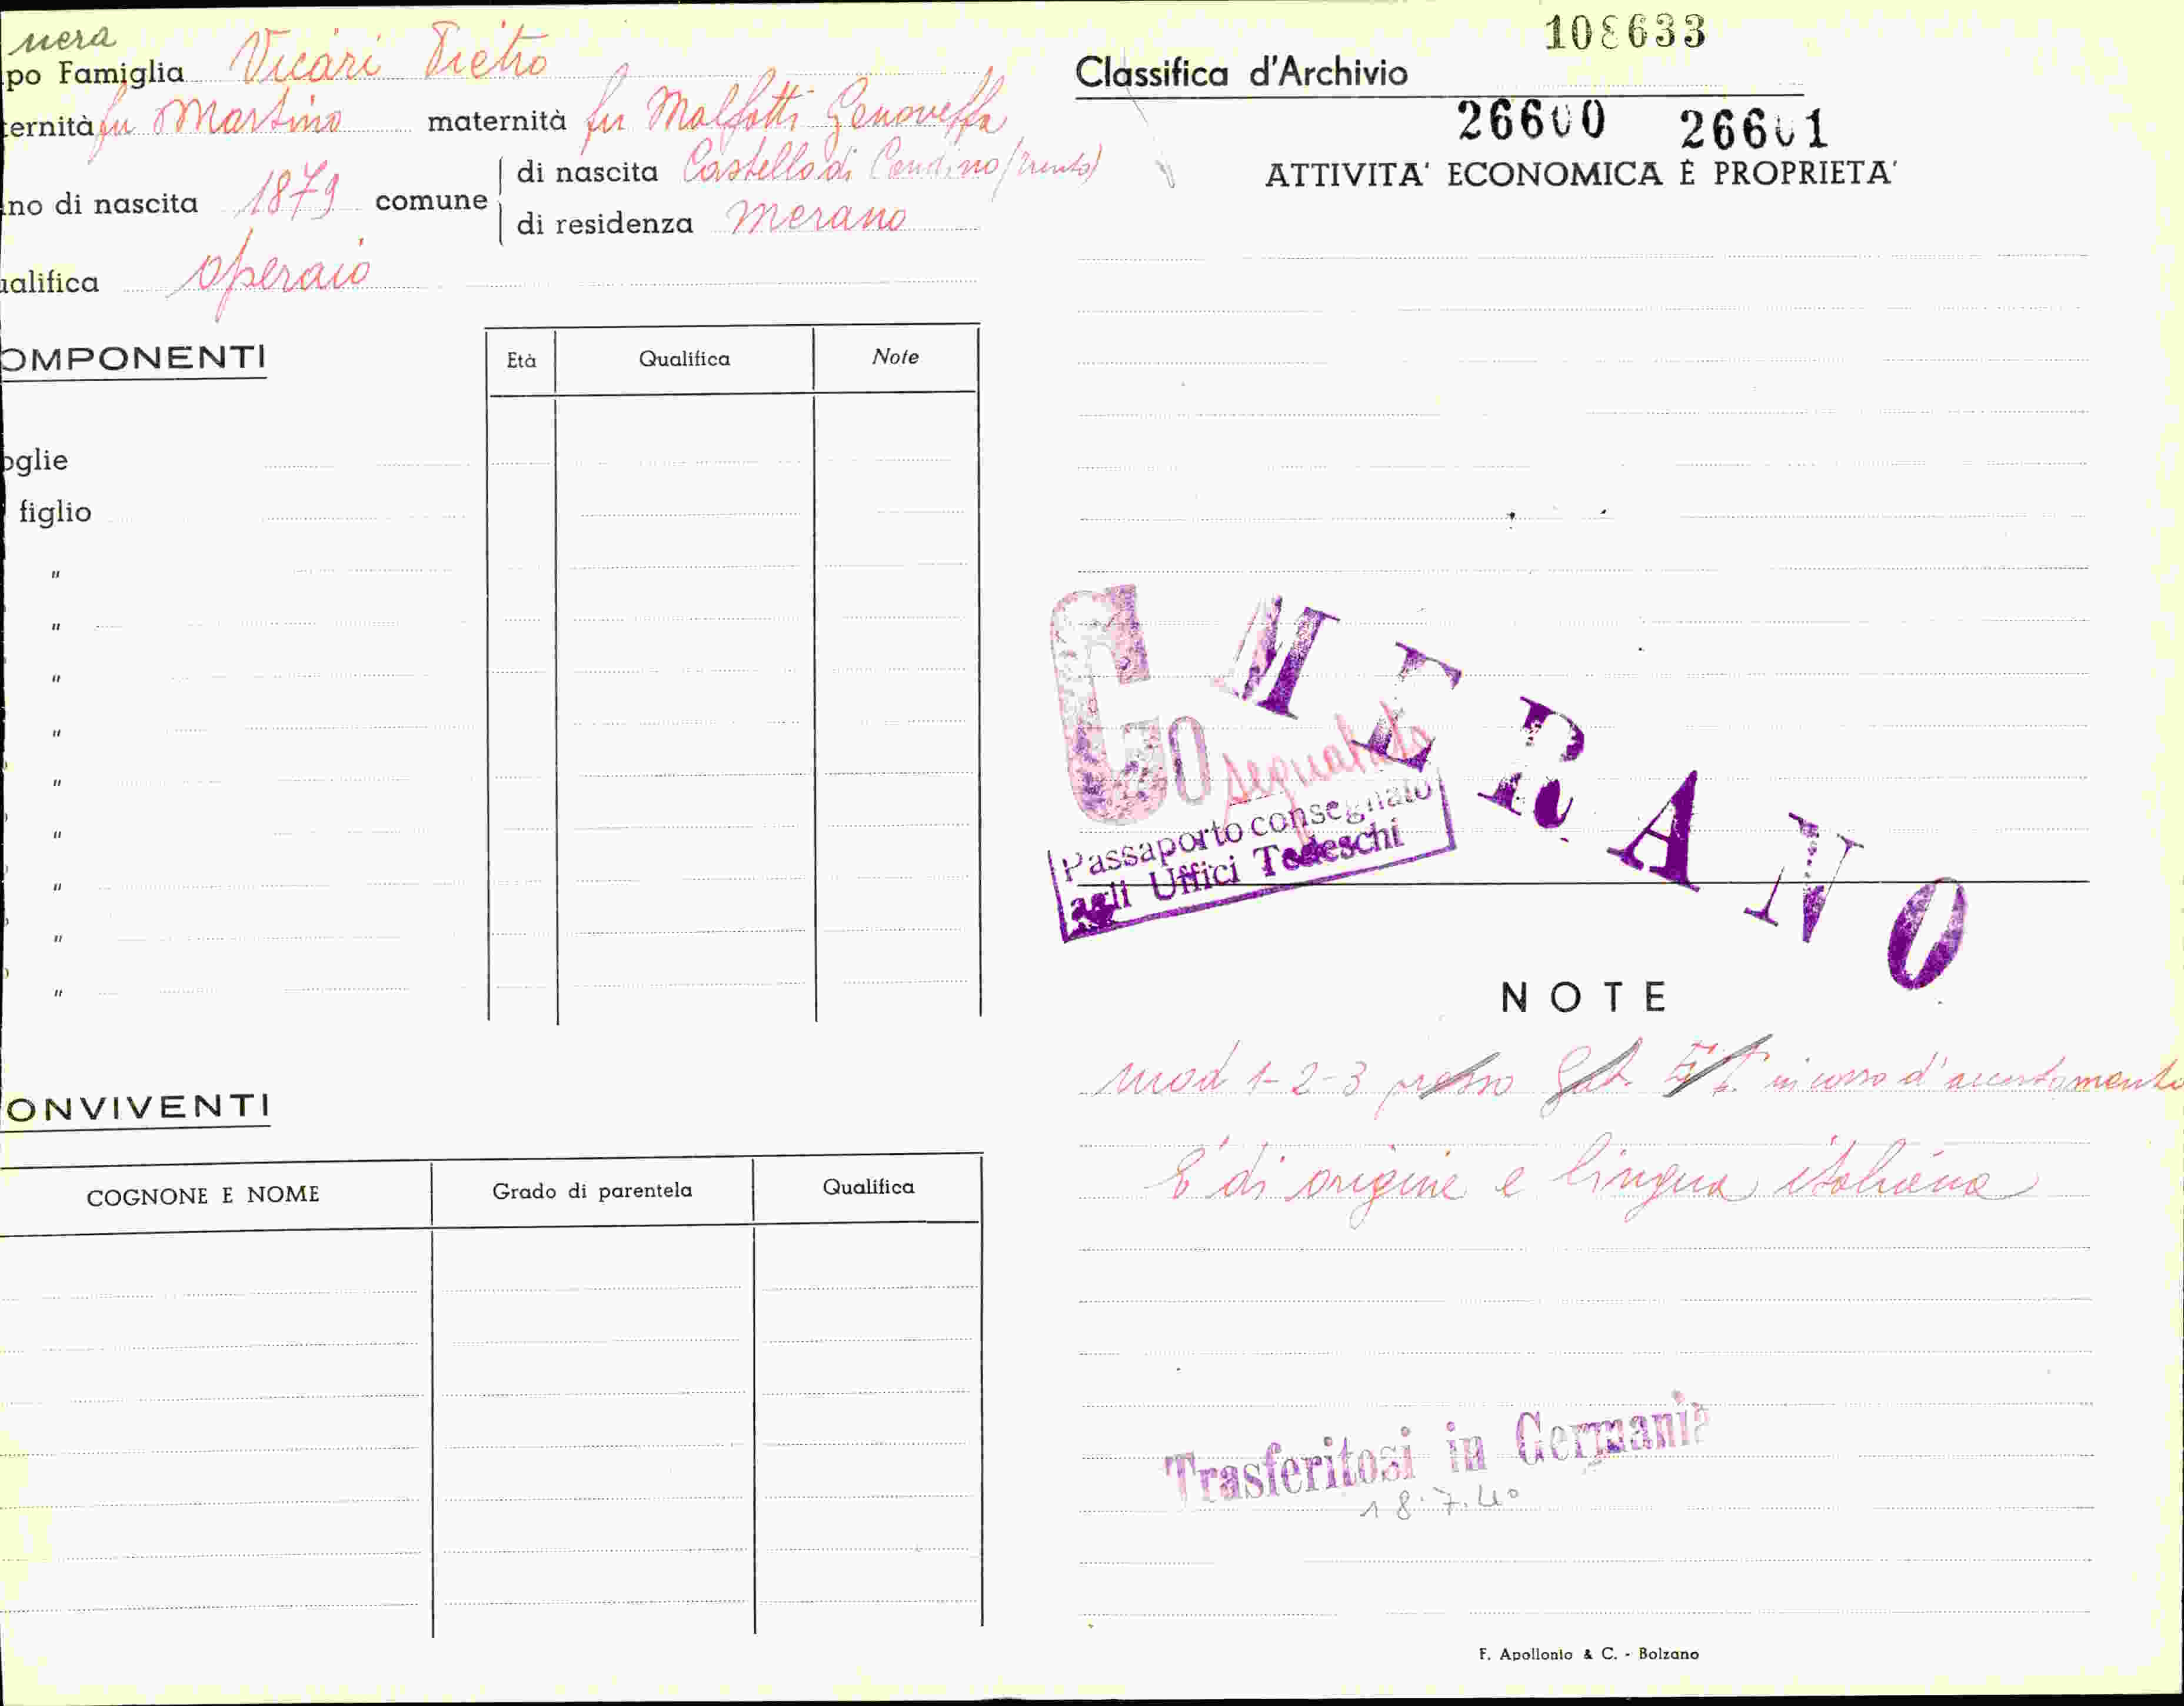 nera
po Famiglia Vicari Pietro
ternità fu Martino maternità fu Malfatti Genoveffa
no di nascita 1879 comune di nascita Castello di Condino (Trento)
di residenza Merano
ualifica operaio
OMPONENTI Età Qualifica Note
oglie
figlio
"
"
"
"
"
"
"
"
"
ONVIVENTI
COGNONE E NOME Grado di parentela Qualifica
108633
Classifica d'Archivio
26600 26601
ATTIVITA' ECONOMICA E PROPRIETA'
MERANO
segnalato
Passaporto consegnato
agli Uffici Tedeschi
NOTE
mod 1-2-3 presso in corso d'accertamento
È di origine e lingua italiana
Trasferitosi in Germania
18.7.40
F. Apollonio & C. - Bolzano